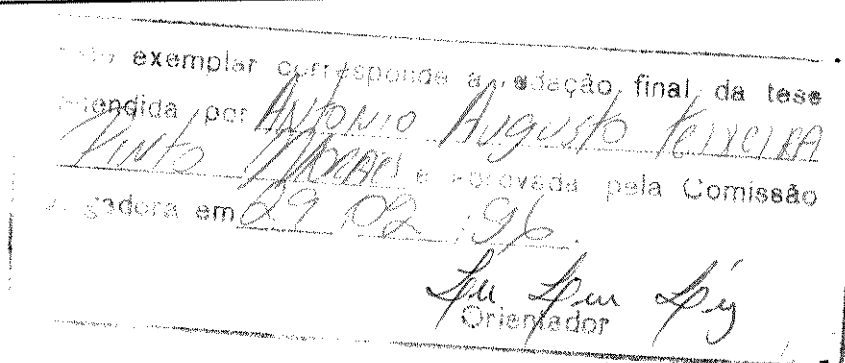 exemplar corresponde a redação final da tese
defendida por Antonio Augusto Teixeira
Pinto Moraes e aprovada pela Comissão
Julgadora em 29 02 96.
Orientador